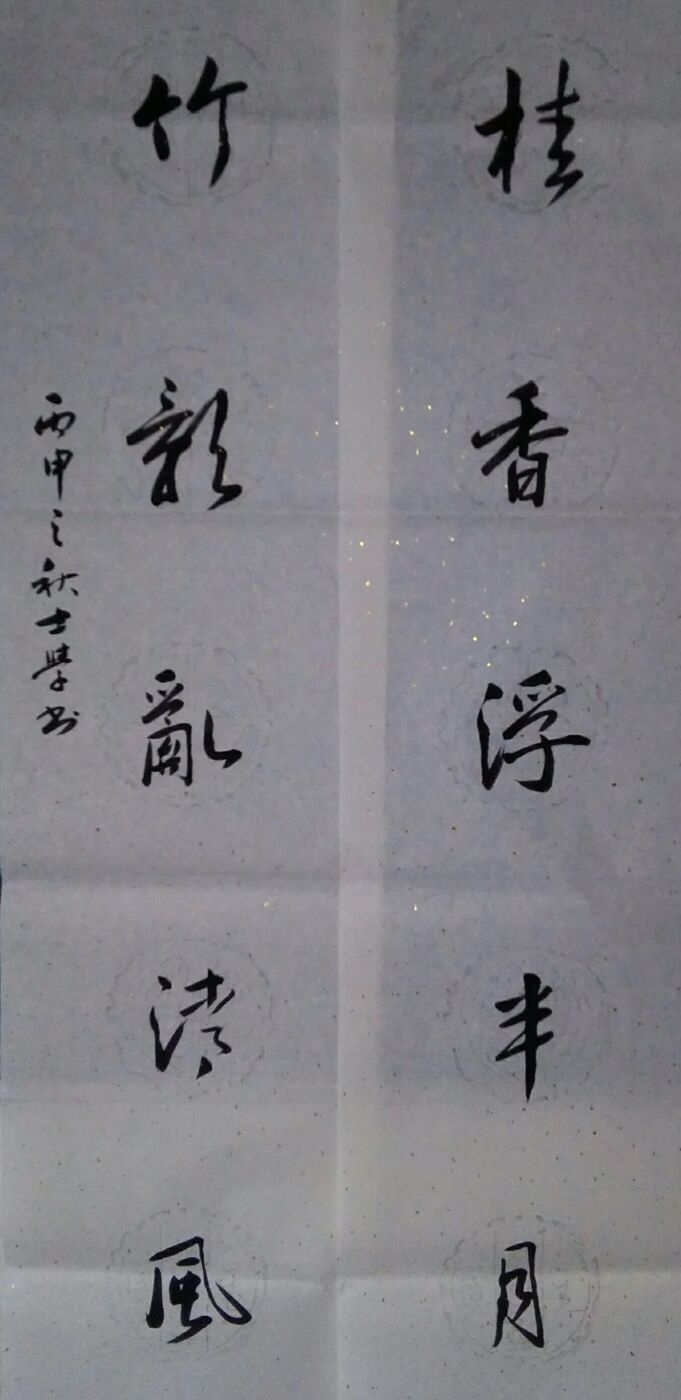 桂香浮半月
竹影亂清風
丙申之秋士學书